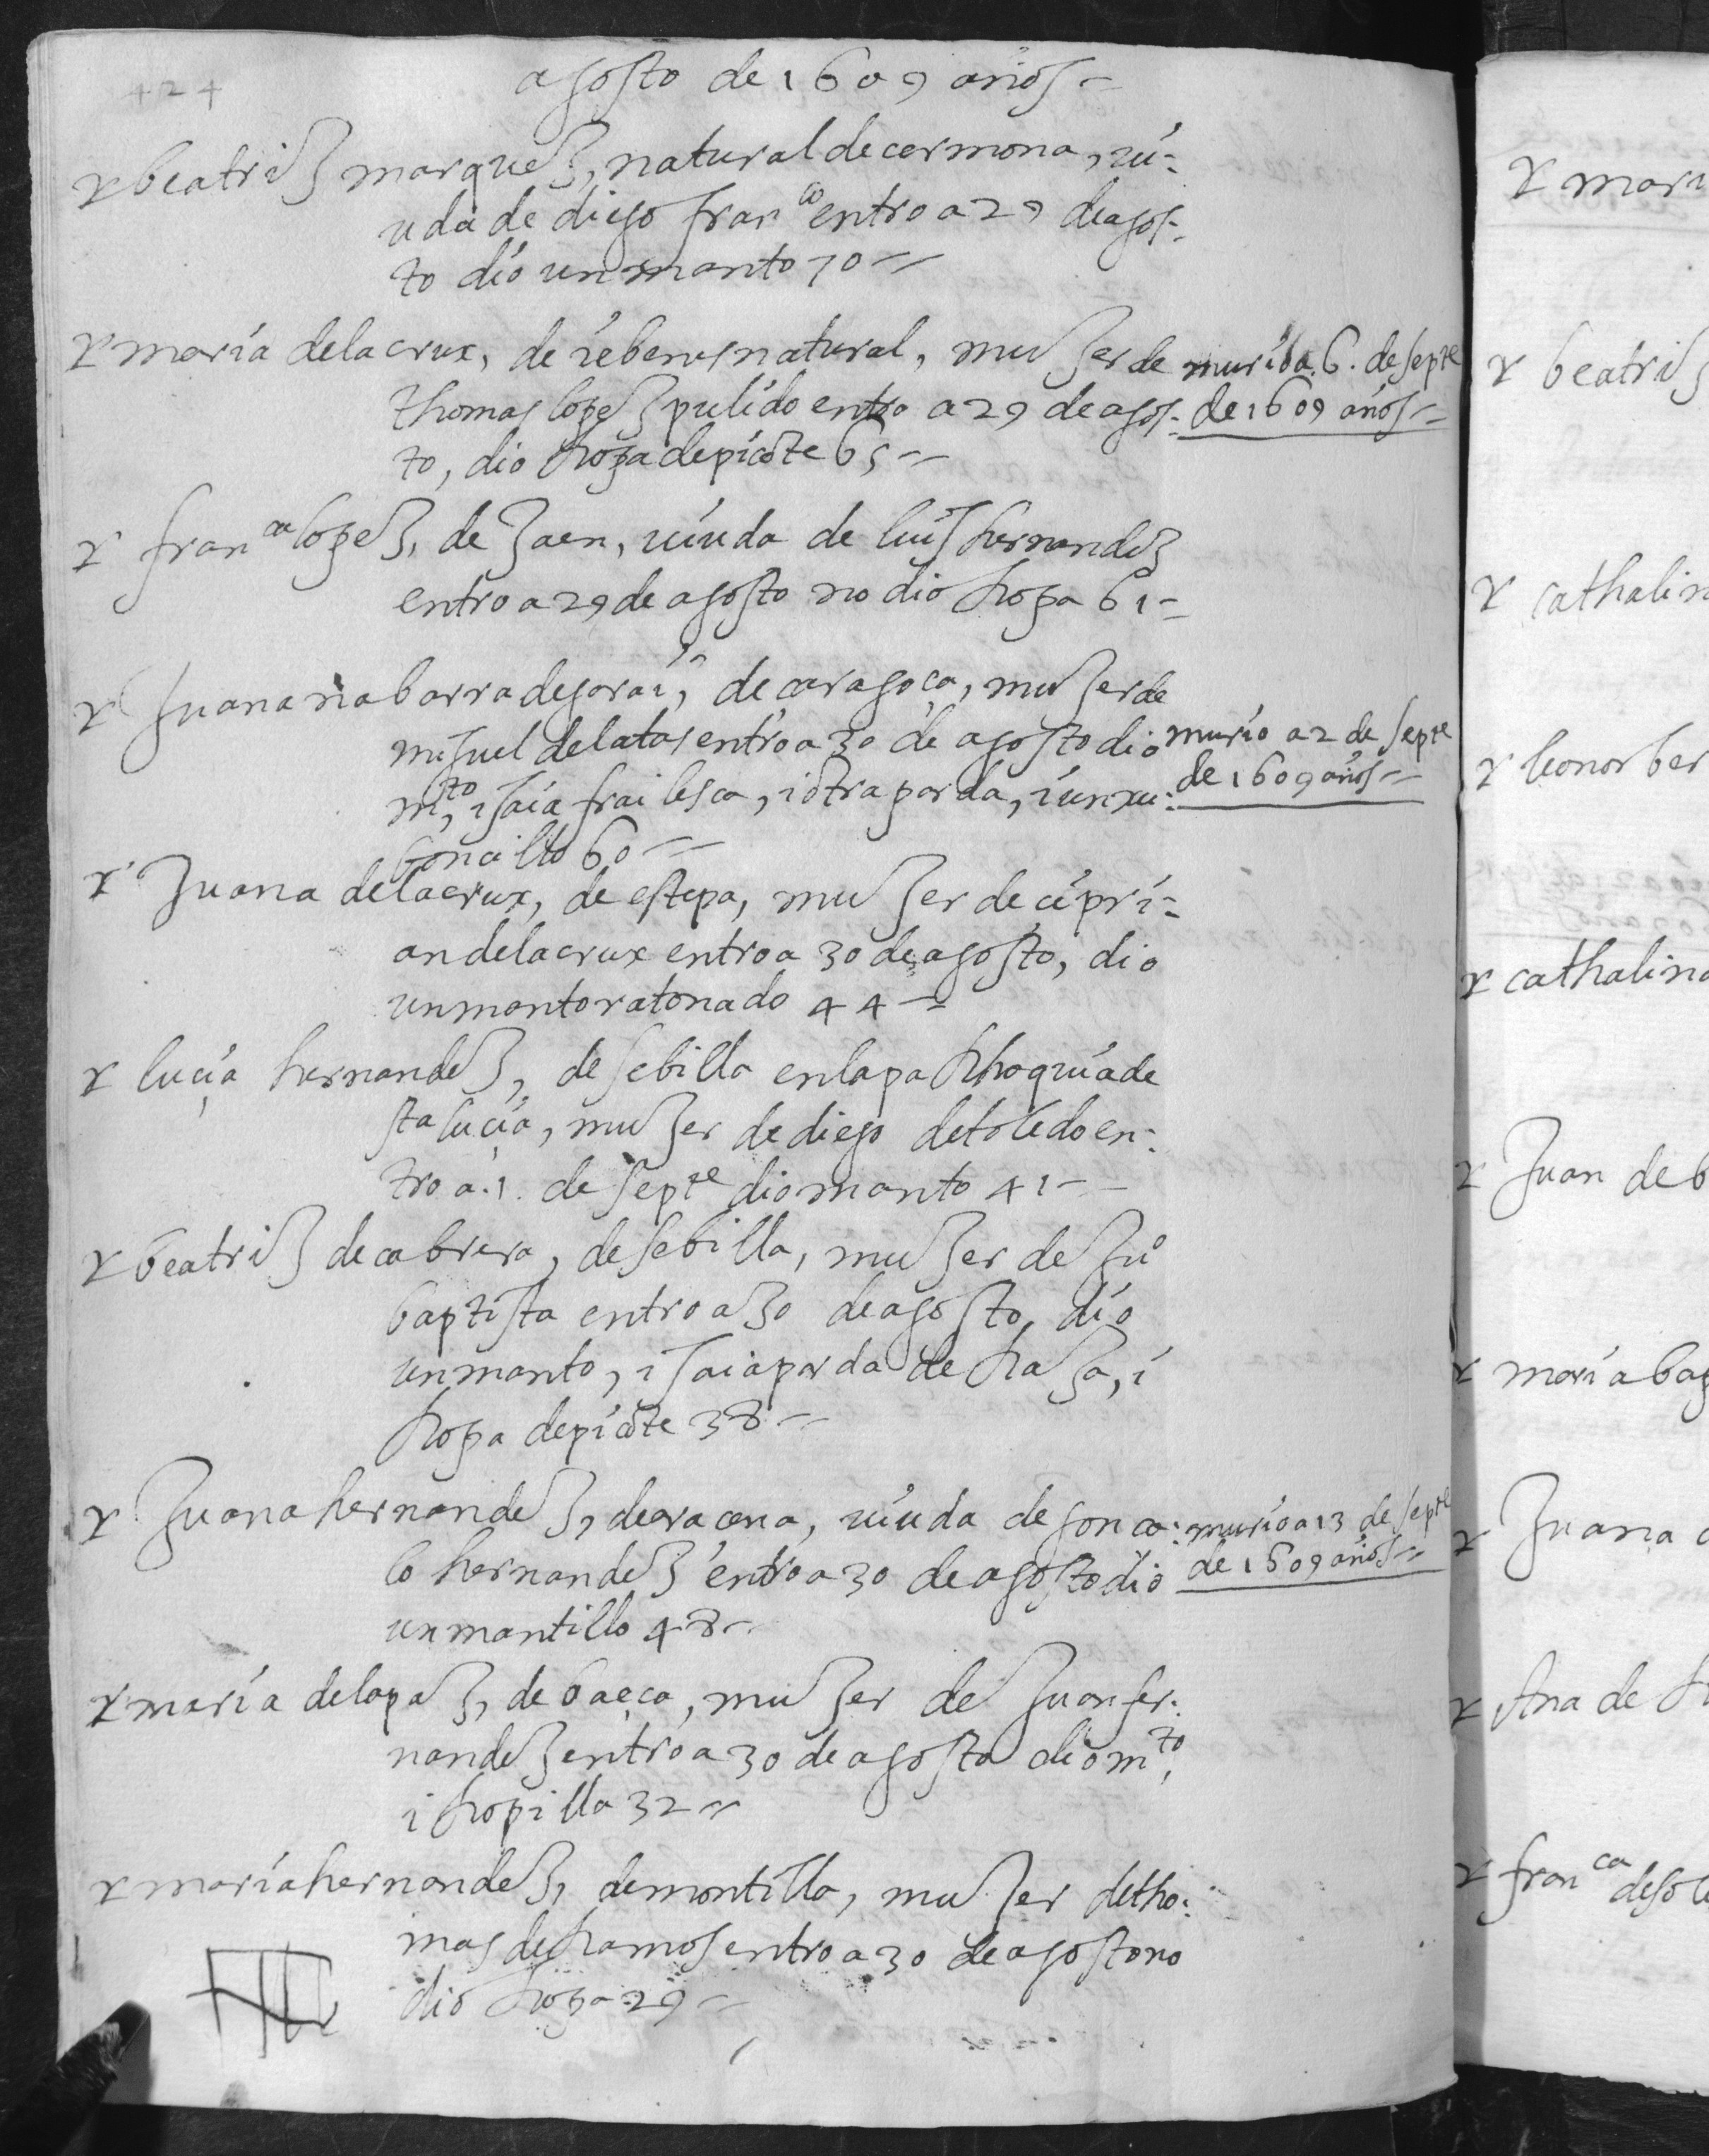 424
agosto de 1609 años
beatriz marquez, natural de carmona, viu-
uda de diego fran.co entro a 29 de agos-
to dio un manto 70
maria de la crux, de iebenes natural, muger de
thomas lopez pulido entro a 29 de agos-
to, dio rropa de picote 65
murio a 6. de septe
de 1609 años
fran.ca lopez, de Jaen, uiuda de luis hernandez
entro a 29 de agosto no dio rropa 61
Juana nabarra de garai, de caragoça, muger de
miguel de latas entro a 30 de agosto dio
m.to, i saia frailesca, i otra parda, i un xu-
boncillo 60
murio a 2 de septe
de 1609 años
Juana de la crux, de estepa, muger de cipri-
an de la crux entro a 30 de agosto, dio
un manto ratonado 44
luçia hernandez, de sebilla en la parrhoquia de
sta luçia, muger de diego de toledo en-
tro a .1. de septe dio manto 41
beatriz de cabrera, de sebilla, muger de Juo
baptista entro a 30 de agosto, dio
un manto, i saia parda de rraja, i
rropa de picote 38
Juana hernandez, de aracena, uiuda de gonca-
lo hernandez entro a 30 de agosto dio
un mantillo 48
murio a 13 de septe
de 1609 años
maria de la paz, de baeça, muger de Juan fer-
nandez entro a 30 de agosto dio m.to,
i rropilla 32
maria hernandez, de montilla, muger de tho-
mas de rramos entro a 30 de agosto no
dio rropa 29
mari
beatriz
cathalin
leonor ber
cathalina
Juan de b
maria bap
Juana
Ana de
fran.ca de